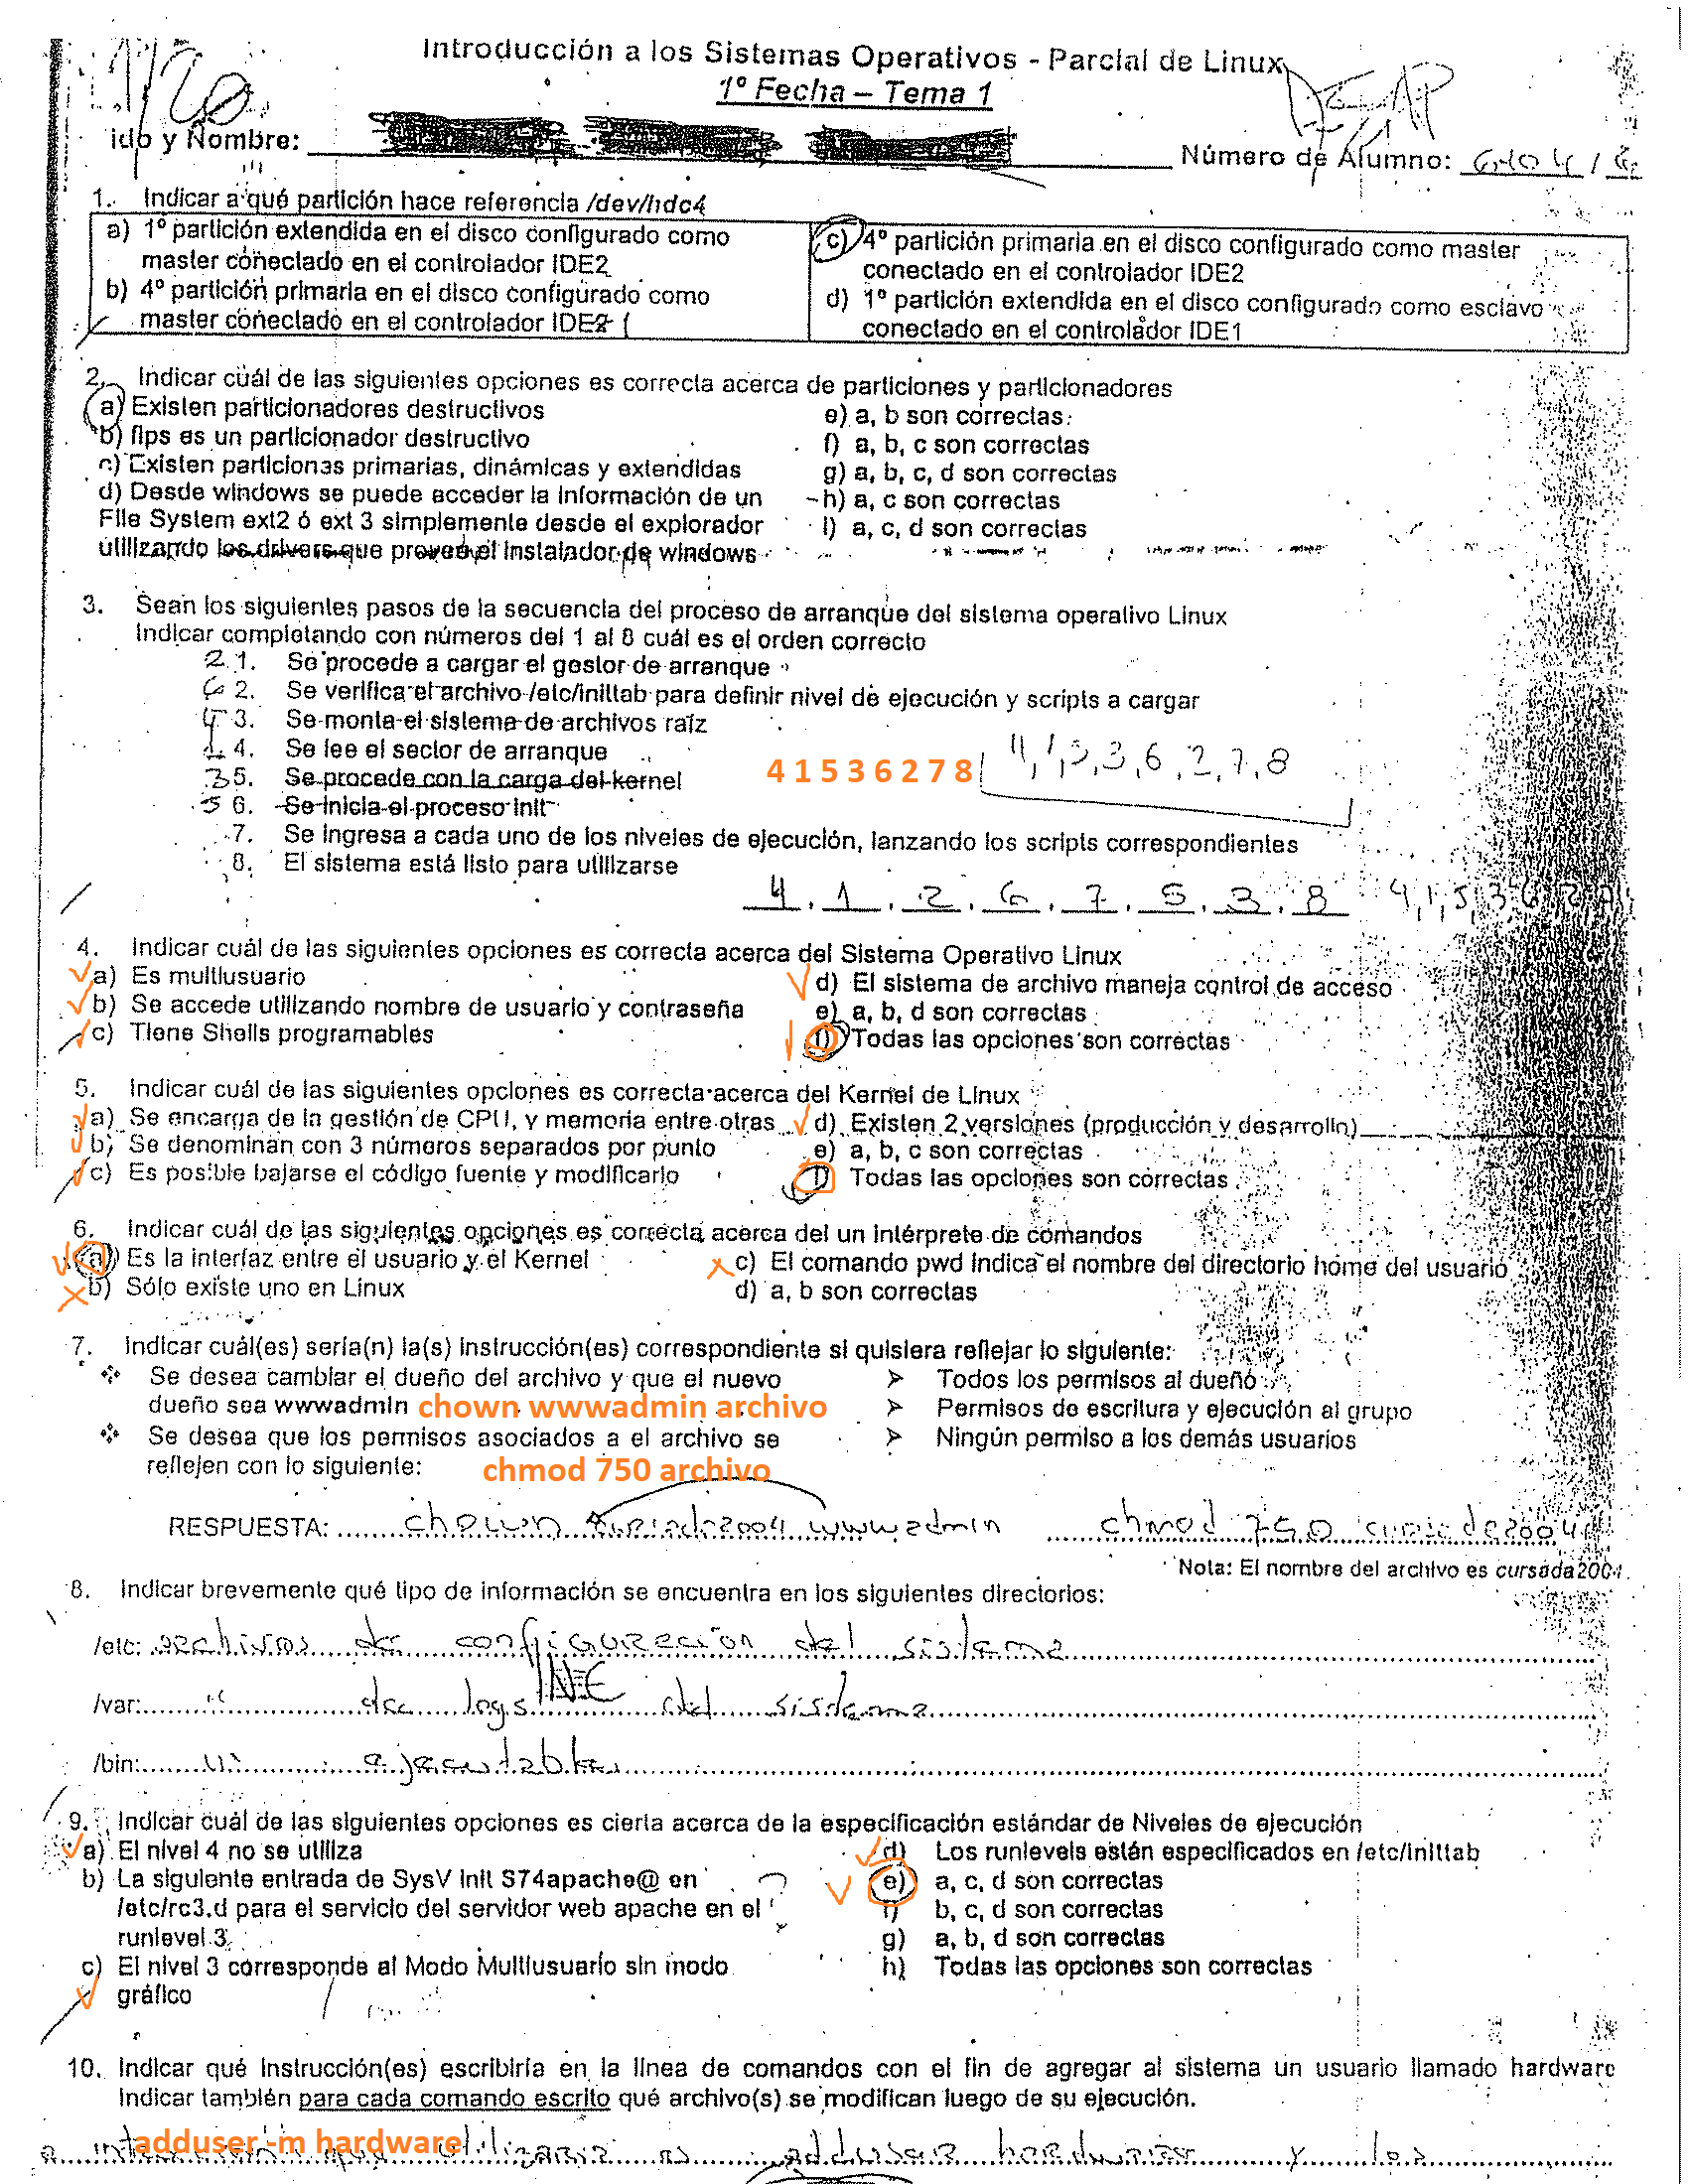 Introducción a los Sistemas Operativos - Parcial de Linux
1º Fecha – Tema 1
ido y Nombre:
Número de Alumno:
1. Indicar a qué partición hace referencia /dev/hdc4
a) 1º partición extendida en el disco configurado como
master conectado en el controlador IDE2
b) 4º partición primaria en el disco configurado como
master conectado en el controlador IDE2 1
c) 4º partición primaria en el disco configurado como master
conectado en el controlador IDE2
d) 1º partición extendida en el disco configurado como esclavo
conectado en el controlador IDE1
2. Indicar cuál de las siguientes opciones es correcta acerca de particiones y particionadores
a) Existen particionadores destructivos
b) fips es un particionador destructivo
c) Existen particiones primarias, dinámicas y extendidas
d) Desde windows se puede acceder la información de un
File System ext2 ó ext 3 simplemente desde el explorador
utilizando los drivers que provee el instalador de windows
e) a, b son correctas
f) a, b, c son correctas
g) a, b, c, d son correctas
h) a, c son correctas
i) a, c, d son correctas
3. Sean los siguientes pasos de la secuencia del proceso de arranque del sistema operativo Linux
Indicar completando con números del 1 al 8 cuál es el orden correcto
2 1. Se procede a cargar el gestor de arranque
6 2. Se verifica el archivo /etc/inittab para definir nivel de ejecución y scripts a cargar
4 3. Se monta el sistema de archivos raíz
1 4. Se lee el sector de arranque
3 5. Se procede con la carga del kernel
5 6. Se inicia el proceso init
7. Se ingresa a cada uno de los niveles de ejecución, lanzando los scripts correspondientes
8. El sistema está listo para utilizarse
4 1 5 3 6 2 7 8
4, 1, 5, 3, 6, 2, 7, 8
4, 1, 2, 6, 7, 5, 3, 8
4, 1, 5, 3, 6, 2
4. Indicar cuál de las siguientes opciones es correcta acerca del Sistema Operativo Linux
a) Es multiusuario
b) Se accede utilizando nombre de usuario y contraseña
c) Tiene Shells programables
d) El sistema de archivo maneja control de acceso
e) a, b, d son correctas
f) Todas las opciones son correctas
5. Indicar cuál de las siguientes opciones es correcta acerca del Kernel de Linux
a) Se encarga de la gestión de CPU, y memoria entre otras
b) Se denominan con 3 números separados por punto
c) Es posible bajarse el código fuente y modificarlo
d) Existen 2 versiones (producción y desarrollo)
e) a, b, c son correctas
f) Todas las opciones son correctas
6. Indicar cuál de las siguientes opciones es correcta acerca del un intérprete de comandos
a) Es la interfaz entre el usuario y el Kernel
b) Sólo existe uno en Linux
c) El comando pwd indica el nombre del directorio home del usuario
d) a, b son correctas
7. Indicar cuál(es) sería(n) la(s) instrucción(es) correspondiente si quisiera reflejar lo siguiente:
❖ Se desea cambiar el dueño del archivo y que el nuevo
dueño sea wwwadmin chown wwwadmin archivo
❖ Se desea que los permisos asociados a el archivo se
reflejen con lo siguiente: chmod 750 archivo
➢ Todos los permisos al dueño
➢ Permisos de escritura y ejecución al grupo
➢ Ningún permiso a los demás usuarios
RESPUESTA: chown cursada2004 wwwadmin chmod 750 cursada2004
Nota: El nombre del archivo es cursada2004.
8. Indicar brevemente qué tipo de información se encuentra en los siguientes directorios:
/etc: archivos de configuración del sistema
/var: " de logs del sistema
/bin: " ejecutables
9. Indicar cuál de las siguientes opciones es cierta acerca de la especificación estándar de Niveles de ejecución
a) El nivel 4 no se utiliza
b) La siguiente entrada de SysV Init S74apache@ en
/etc/rc3.d para el servicio del servidor web apache en el
runlevel 3
c) El nivel 3 corresponde al Modo Multiusuario sin modo
gráfico
d) Los runlevels están especificados en /etc/inittab
e) a, c, d son correctas
f) b, c, d son correctas
g) a, b, d son correctas
h) Todas las opciones son correctas
10. Indicar qué instrucción(es) escribiría en la línea de comandos con el fin de agregar al sistema un usuario llamado hardware
Indicar también para cada comando escrito qué archivo(s) se modifican luego de su ejecución.
adduser -m hardware
adduser hardware y los